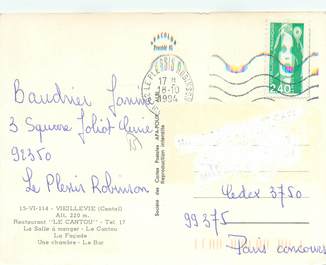 APACOLOR
Procédé 4G
LE PLESSIS ROBINSON
17 H
18-10
1994
2,40
Baudrier Janine
3 Square Joliot Curie
92350
Le Plessis Robinson
15-VI-114 - VIEILLEVIE (Cantal)
Alt. 220 m.
Restaurant "LE CANTOU" - Tél. 17
La Salle à manger - Le Cantou
La Façade
Une chambre - Le Bar
Société des Cartes Postales APA-POUX
Reproduction interdite
Cedex 3750
99375
Paris concours